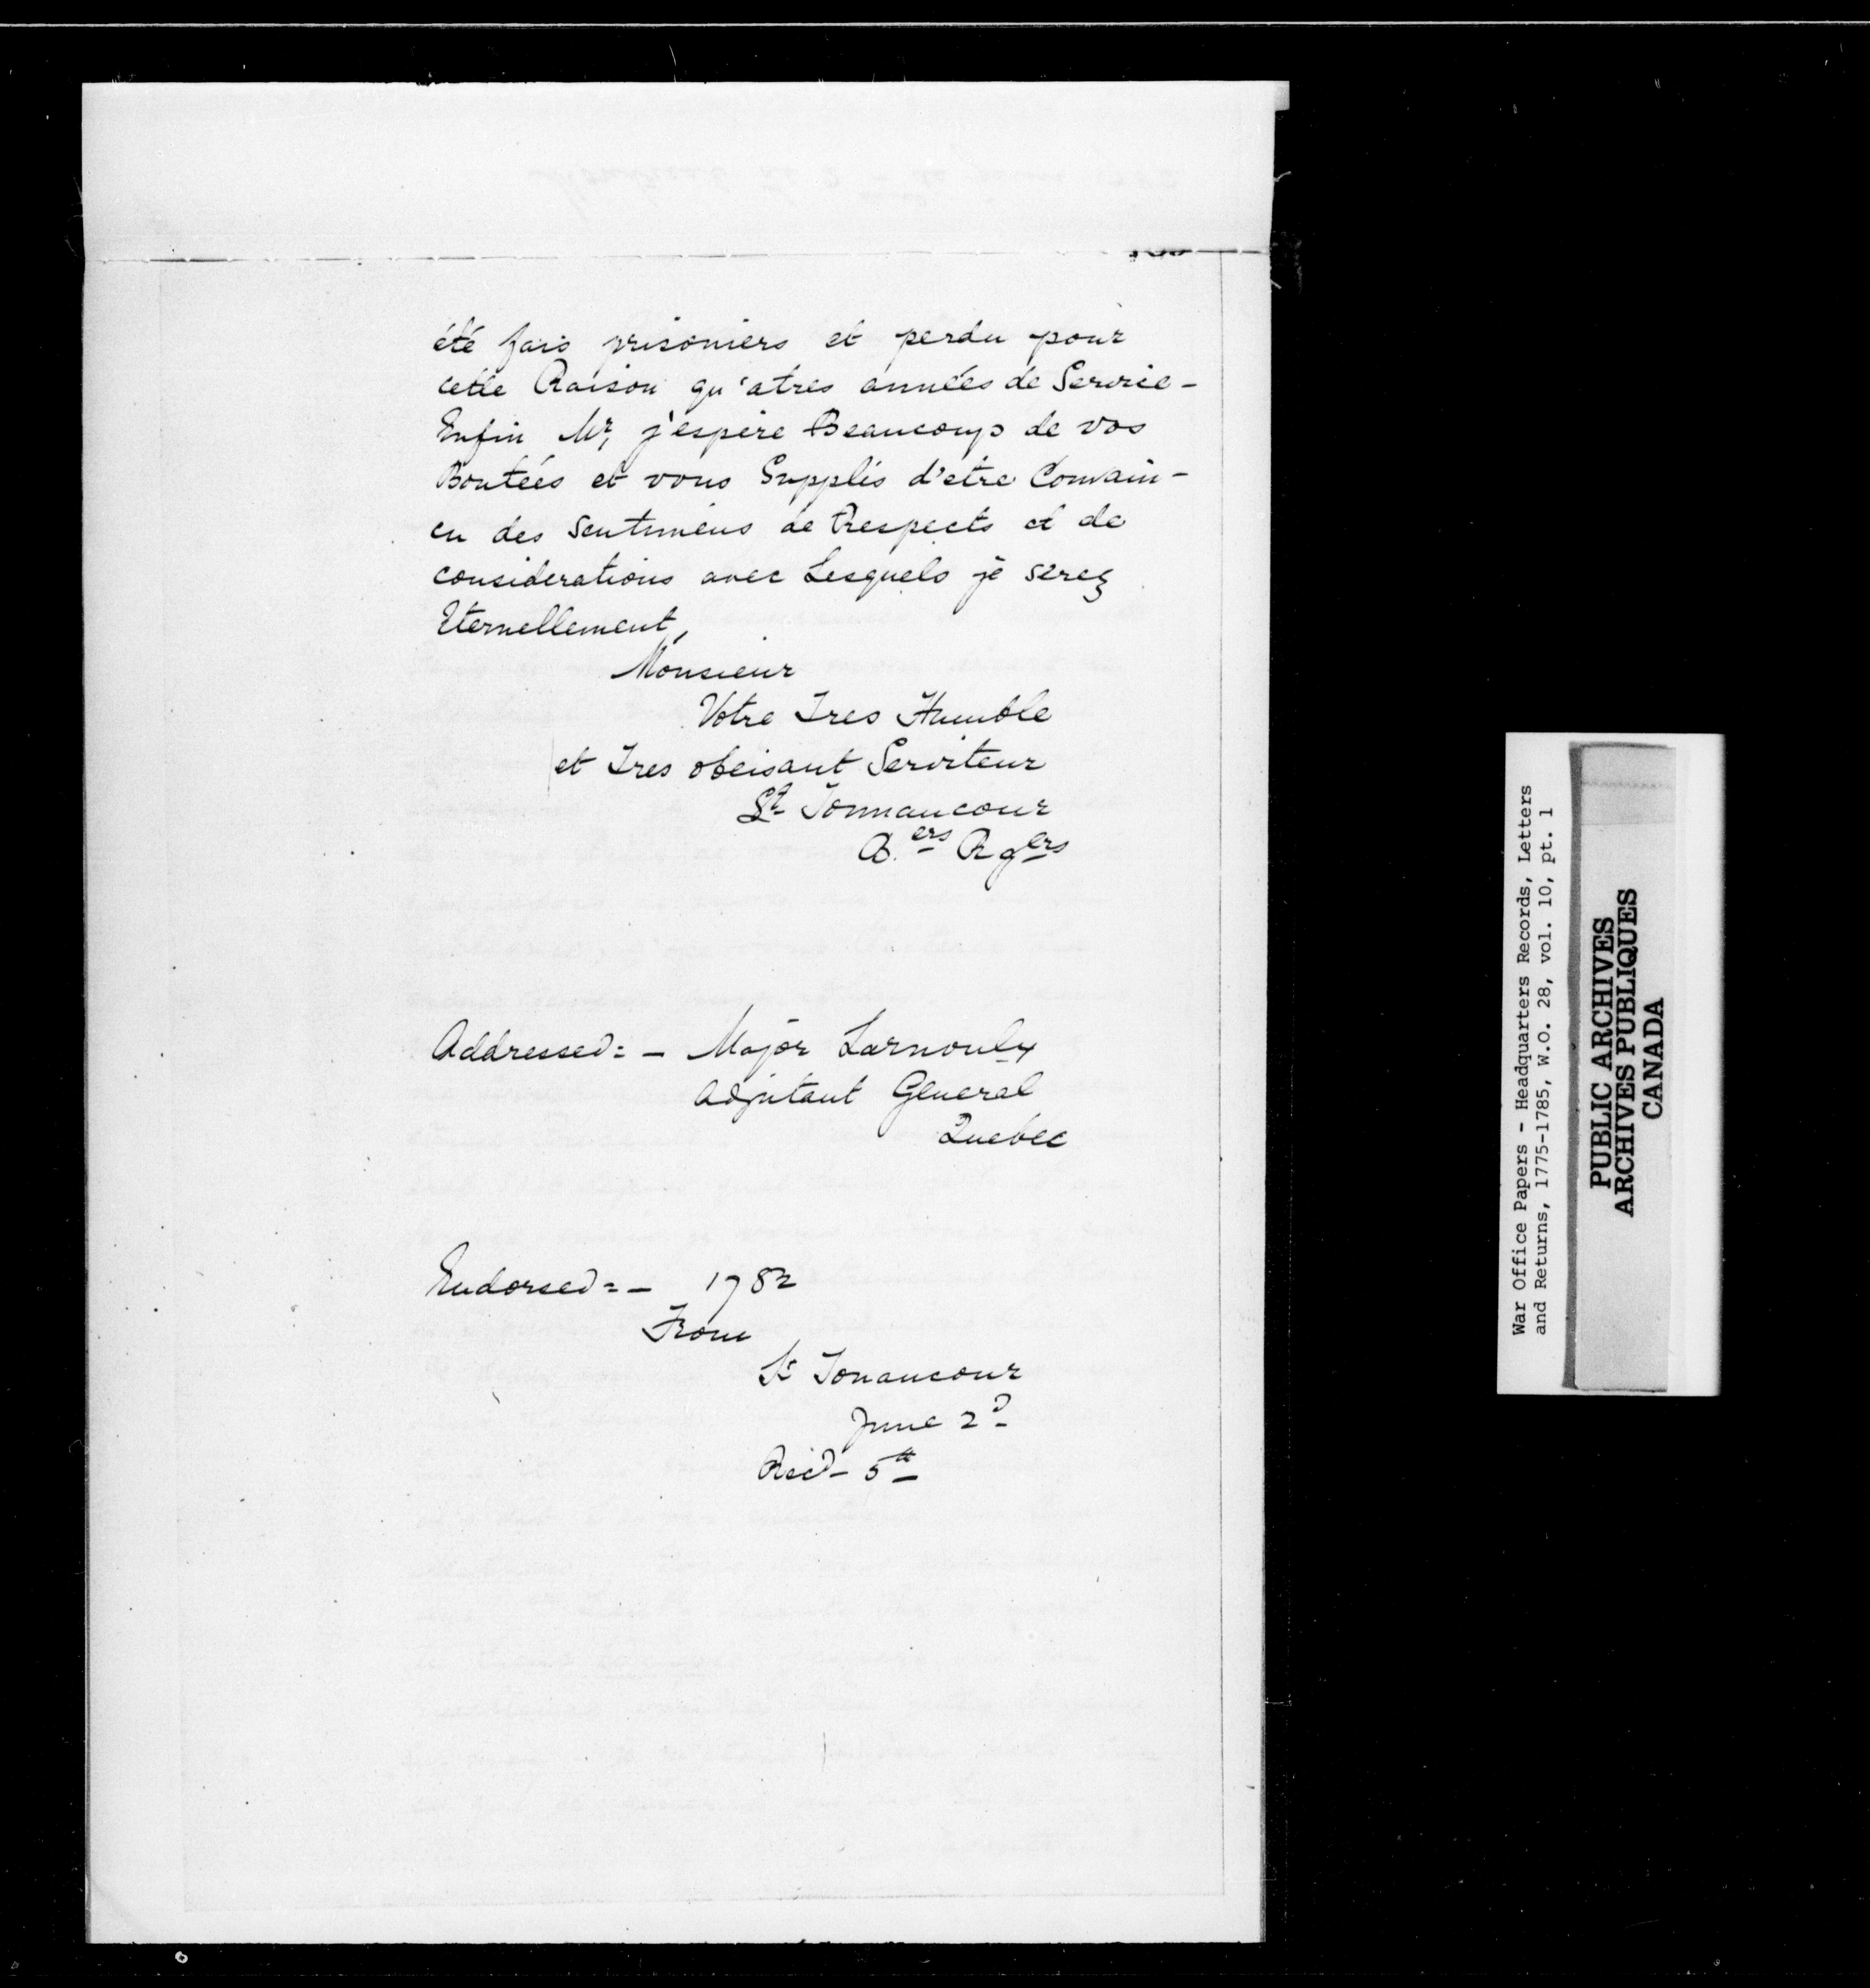 été fais prisoniers et perdu pour
cette Raison qu'atres années de Service -
Enfin Mr, j'espère Beaucoup de vos
Bontées et vous Supplis d'etre Convain-
cu des Sentimens de Respects et de
considerations avec Lesquels je serez
Eternellement,
Monsieur
Votre Tres Humble
et Tres obeisant Serviteur
St Tonnancour
B.ers Rgers
Addressed:- Major Lernoult
Adjutant General
Quebec
Endorsed:- 1782
From
St Tonancour
June 2d
Recd - 5th
War Office Papers - Headquarters Records, Letters
and Returns, 1775-1785, W.O. 28, vol. 10, pt. 1
PUBLIC ARCHIVES
ARCHIVES PUBLIQUES
CANADA